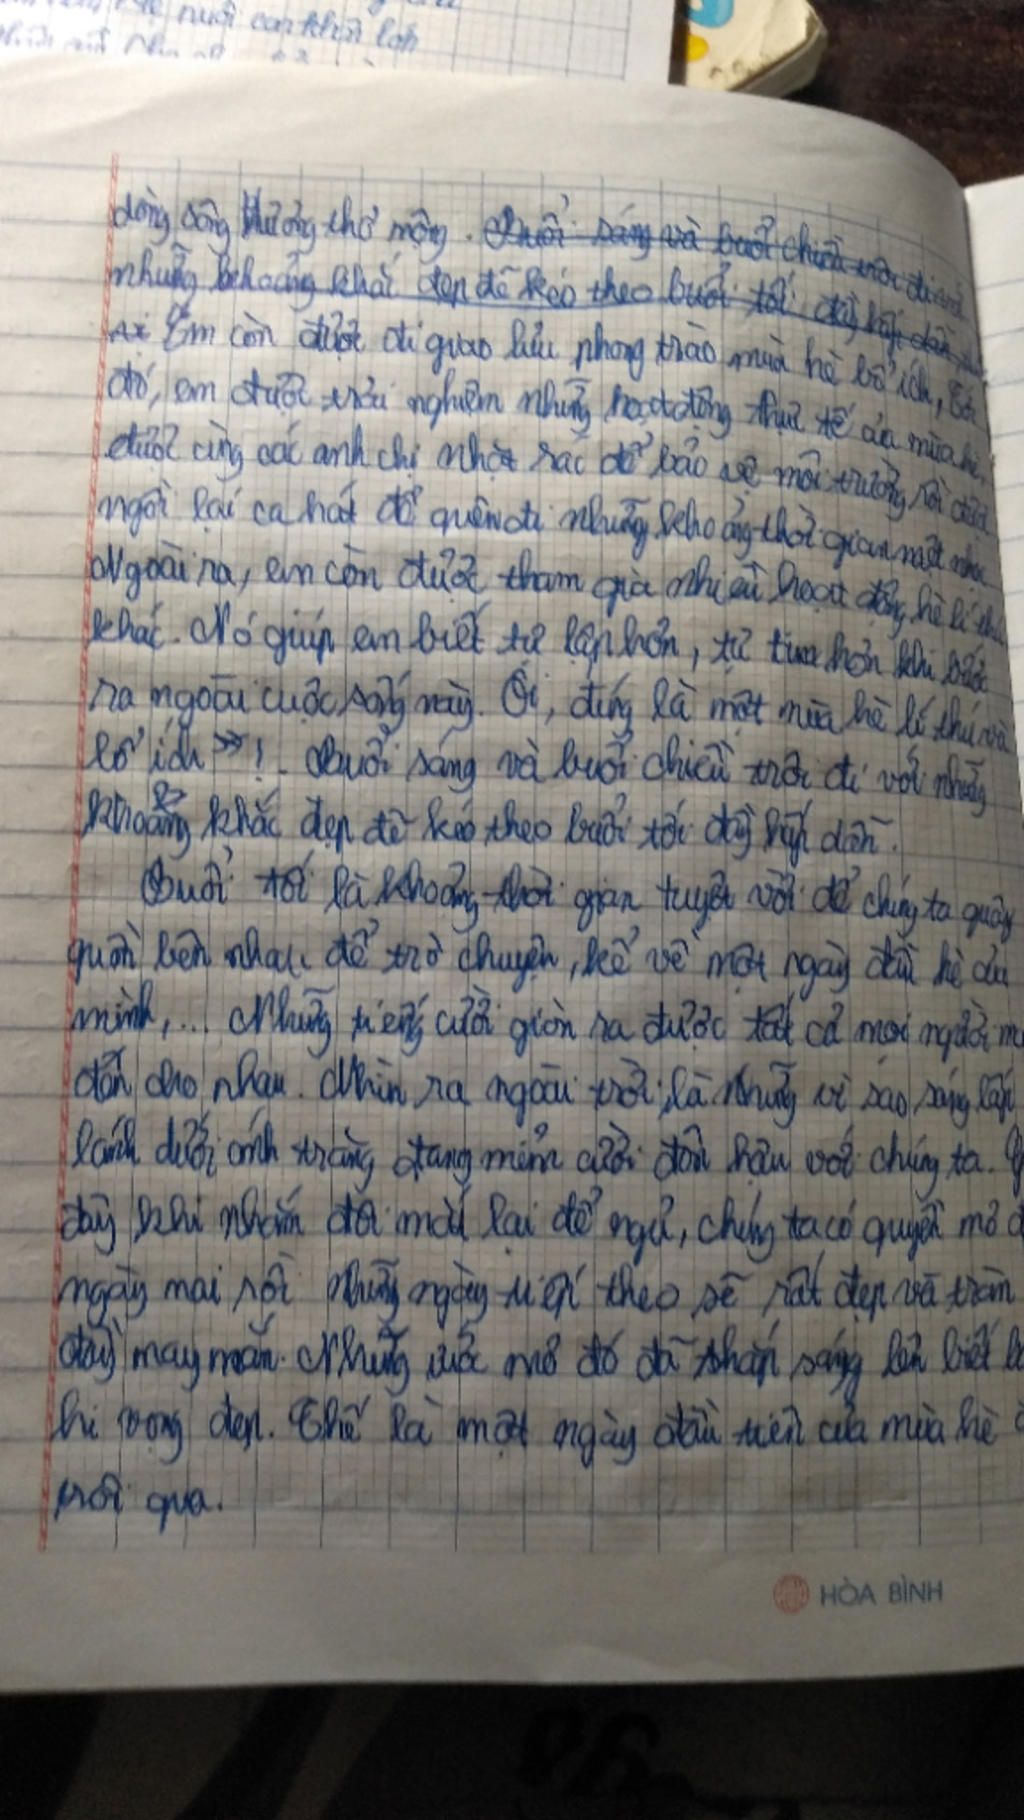 nuôi con khôn lớn
dòng sông Hương thơ mộng. Buổi sáng và buổi chiều trôi đi với
những khoảng khắc đẹp đẽ kéo theo buổi tối đầy hấp dẫn
Em còn được đi giao lưu phong trào mùa hè bổ ích, Bởi
đó, em được trải nghiệm những hoạt động thực tế của mùa hè,
được cùng các anh chị nhặt rác để bảo vệ môi trường rồi được
ngồi lại ca hát để quên đi những khoảng thời gian mệt nhọc
Ngoài ra, em còn được tham gia nhiều hoạt động hè lí thú
khác. Nó giúp em biết tự lập hơn, tự tin hơn khi bước
ra ngoài cuộc sống này. Ôi, đúng là một mùa hè lí thú và
bổ ích! Buổi sáng và buổi chiều trôi đi với những
khoảng khắc đẹp đẽ kéo theo buổi tối đầy hấp dẫn.
Buổi tối là khoảng thời gian tuyệt vời để chúng ta quây
quần bên nhau để trò chuyện, kể về một ngày đầu hè của
mình,... Những tiếng cười giòn ra được tất cả mọi người
đón cho nhau. Nhìn ra ngoài trời, là những vì sao sáng lấp
lánh dưới ánh trăng đang mỉm cười đôn hậu với chúng ta.
đây khi nhắm đôi mắt lại để ngủ, chúng ta có quyền mơ
ngày mai rồi những ngày tiếp theo sẽ rất đẹp và tràn
đầy may mắn. Những ước mơ đó đã thắp sáng lên biết
hi vọng đẹp. Thế là một ngày đầu tiên của mùa hè
trôi qua.
HÒA BÌNH